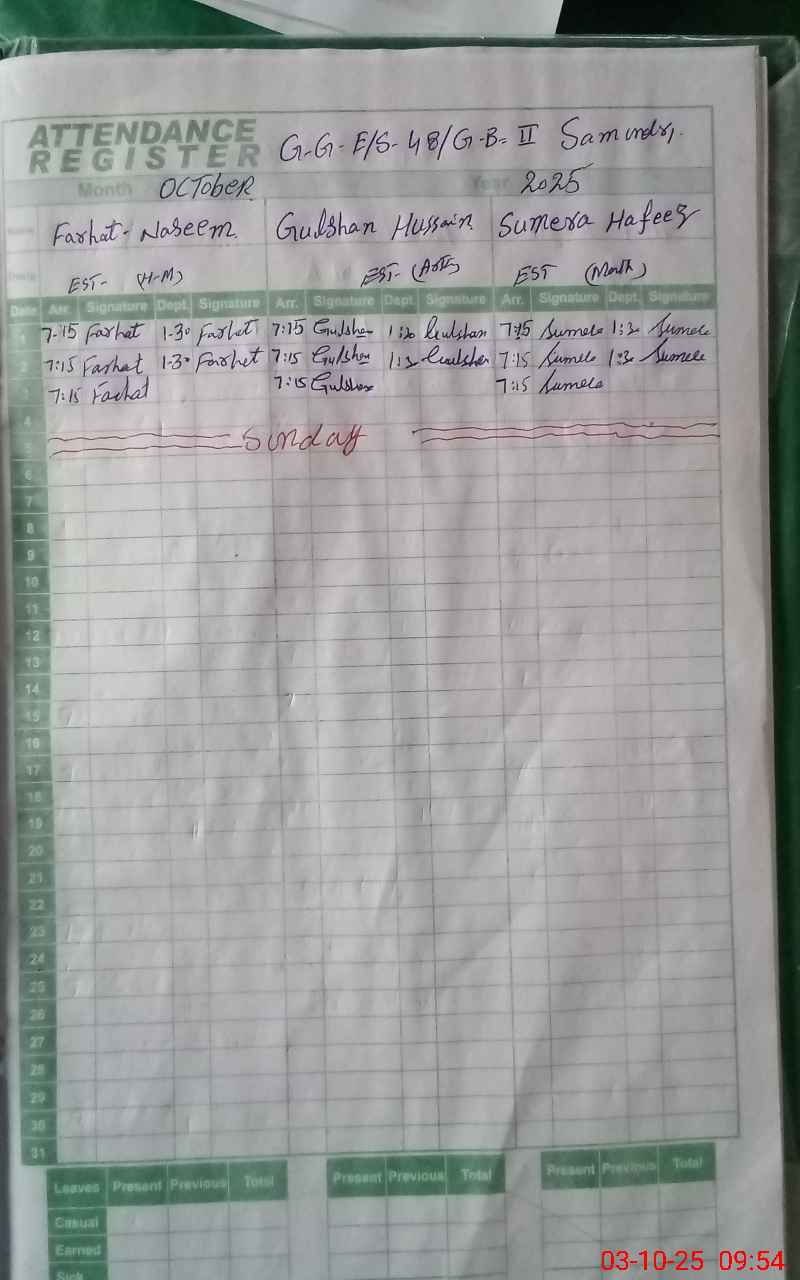 ATTENDANCE
REGISTER
G-G-E/S-48/G-B-II Samundri
Month OCTober Year 2025
Name Farhat-Naseem Gulshan Hussain Sumera Hafeez
EST- (H-M) EST- (Arts) EST (Math)
Date Arr. Signature Dept. Signature Arr. Signature Dept. Signature Arr. Signature Dept. Signature
1 7-15 Farhat 1-30 Farhat 7:15 Gulshan 1:30 Gulshan 7:15 Sumera 1:30 Sumera
2 7:15 Farhat 1-30 Farhat 7:15 Gulshan 1:30 Gulshan 7:15 Sumera 1:30 Sumera
3 7:15 Farhat 7:15 Gulshan 7:15 Sumera
4
5 Sunday
6
7
8
9
10
11
12
13
14
15
16
17
18
19
20
21
22
23
24
25
26
27
28
29
30
31
Leaves Present Previous Total Present Previous Total Present Previous Total
Casual
Earned
Sick
03-10-25 09:54